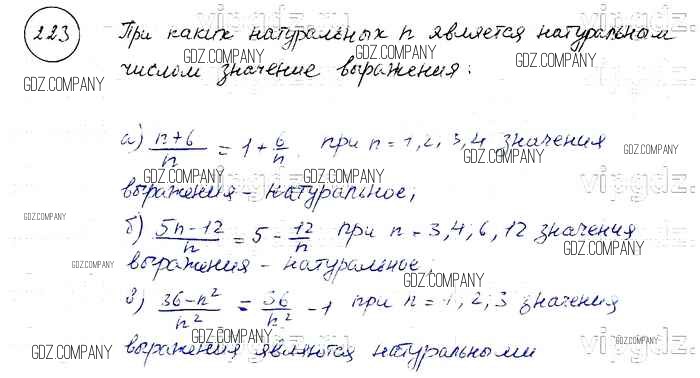 223 При каких натуральных n является натуральном
GDZ.COMPANY GDZ.COMPANY GDZ.COMPANY vipgdz.
числом значение выражения:
а) n+6/n = 1 + 6/n при n = 1, 2, 3, 4 значения
GDZ.COMPANY GDZ.COMPANY GDZ.COMPANY GDZ.COMPANY vipgdz.
выражения - натуральное;
GDZ.COMPANY
б) 5n-12/n = 5 - 12/n при n = 3, 4, 6, 12 значения
GDZ.COMPANY GDZ.COMPANY vipgdz.
выражения - натуральное;
GDZ.COMPANY
в) 36-n²/n² = 36/n² - 1 при n = 1, 2, 3 значения
GDZ.COMPANY GDZ.COMPANY GDZ.COMPANY GDZ.COMPANY vipgdz.
выражения являются натуральными